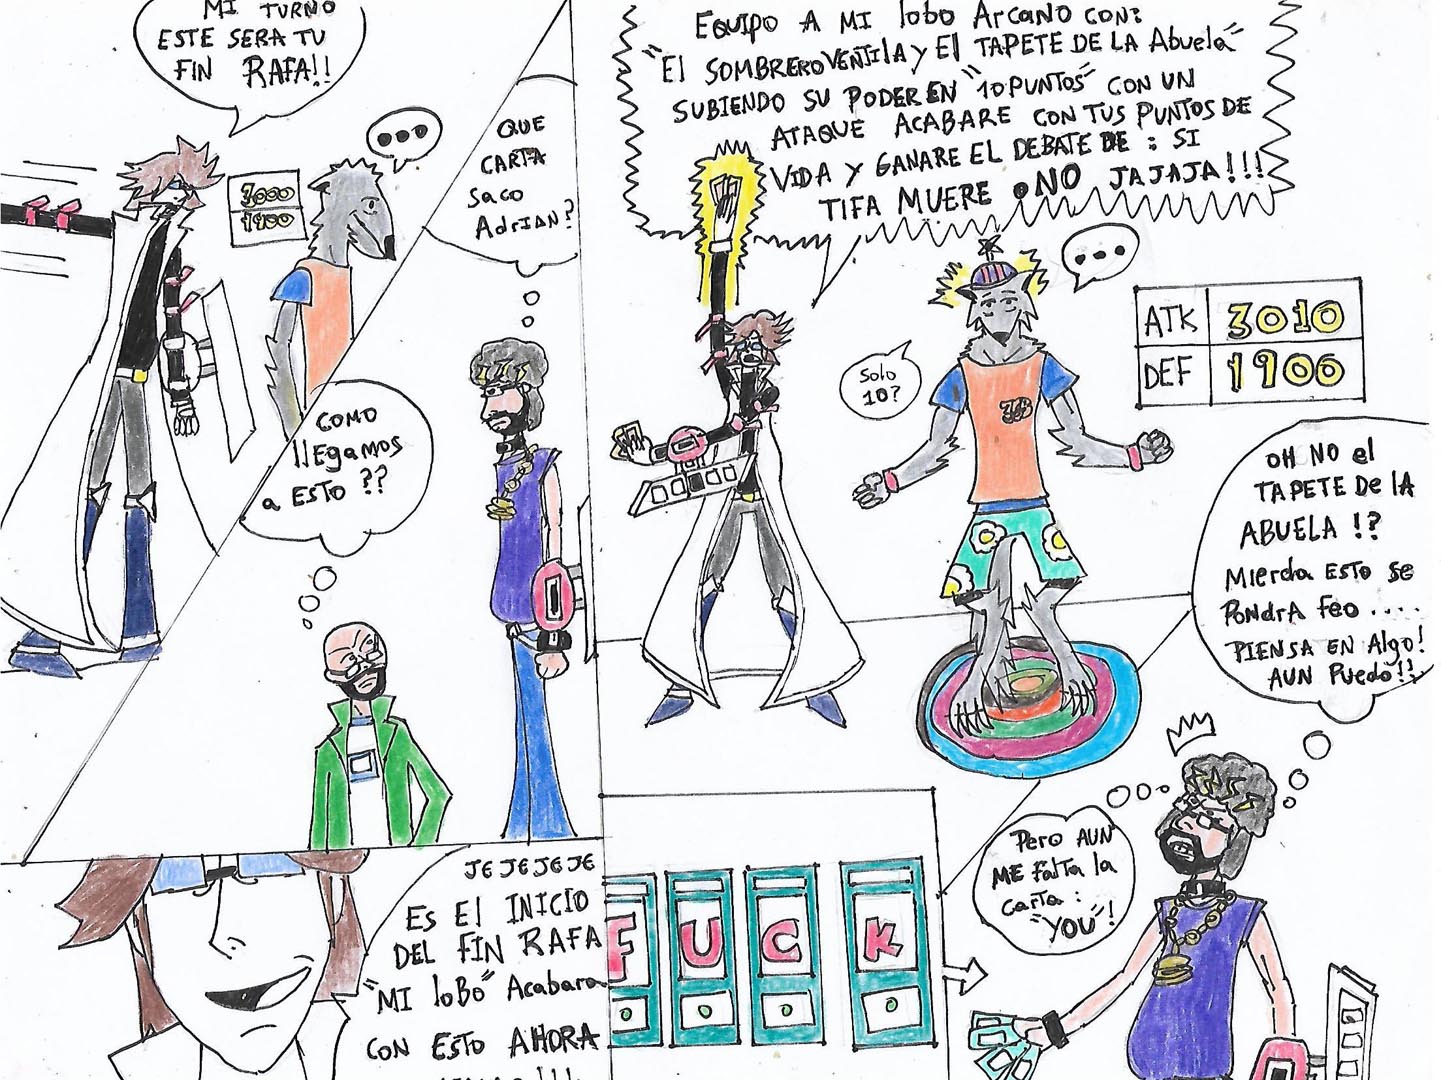 MI TURNO
ESTE SERA TU
FIN RAFA!!
3000
1900
QUE
CARTA
SACO
ADRIAN?
COMO
llEgamos
a ESTO ??
JEJEJEJE
Es El INICIO
DEL FIN RAFA
"MI loBo" Acabara
CON ESTO AHORA
EQUIPO A MI lobo ARCANO CON:
"El SOMBREROVENTILA y El TAPETE DE LA Abuela"
SUBIENDO SU PODER EN "10 PUNTOS" CON UN
ATAQUE ACABARE CON TUS PUNTOS DE
VIDA Y GANARE EL DEBATE DE : SI
TIFA MUERE o NO JAJAJA!!!
Solo
10?
ATK 3010
DEF 1900
OH NO el
TAPETE De lA
ABUELA !?
Mierda ESTO SE
PONDRA Feo ....
PIENSA EN Algo!
AUN PUEDO!!
Pero AUN
ME FAlTA la
carta:
"YOU"!
F U C K